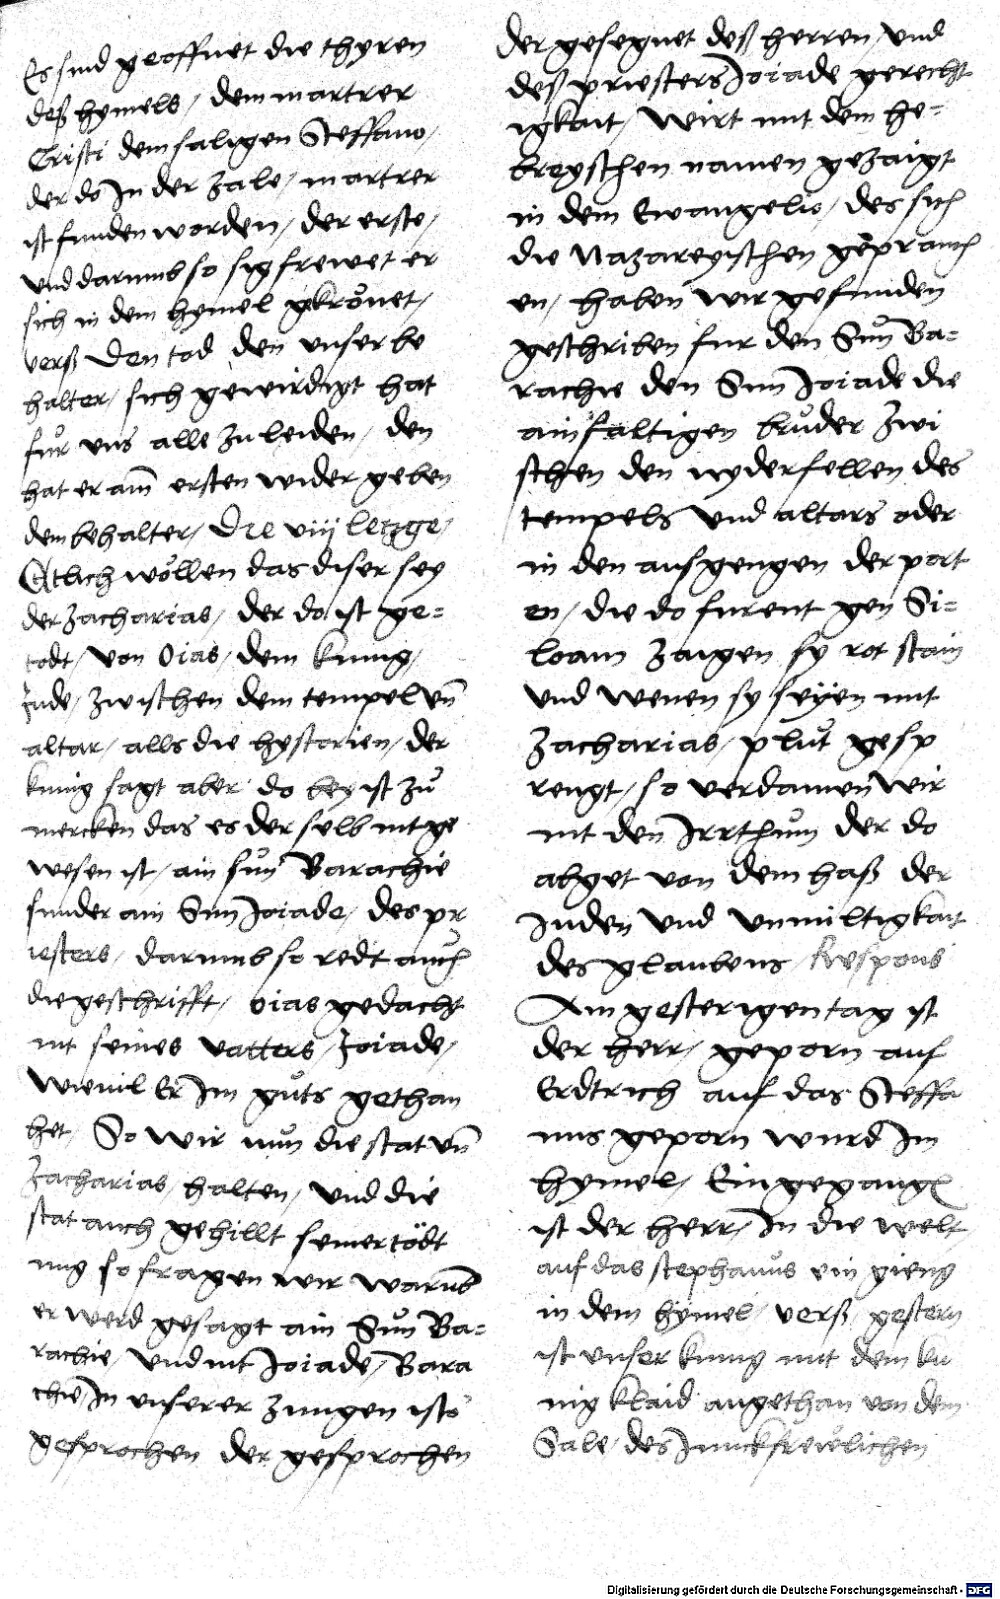 Es sind geoffnet die thyren
deß hymels / dem martrer
Cristi dem saligen Steffano /
der do In der zale / martrer
ist funden worden / der erste /
und darumb so sigfrewet er
sich in dem hymel gekrönet /
verß Den tod den unser be
halter / sich gewirdigt hat
für uns alle zu leiden / den
hat er am̄ ersten wider geben
dem behalter / Die viij letzge /
Etlich wöllen das diser sey
der Zacharias / der do ist ge=
todt / von Oias / dem kunig /
Jude / zwischen dem tempel un̄
altar / alls die hystorien / der
kunig sagt aber do bey ist zů
mercken das es der selb nit ge
wesen ist / ain sůn Barachie
sunder ain Sun Joiade / des pr
iesters / darumb so redt auch
die geschrifft / Oias gedacht
nit seines vatters / Joiade /
wievil Er Im gůts gethan
het / So wir nun die stat un̄
Zacharias / halten / und die
stat auch gehillt seiner tödt
ung so fragen wir warumb
er werd gesagt ain Sun Ba=
rachie / Und nit Joiade / Bara
chie / In unserer zungen ists
gesprochen der gesprochen
der gesegnet deß herren / und
deß priesters Joiade gerecht
igkait / Wirt mit dem he=
breyschen namen gezaigt
in dem Ewangelio / des sich
die Nazareyischen geprauch
en / haben wir gefunden
geschriben fur den Sun Ba=
rachie den Sun Joiade die
ainfaltigen brůder zwi
schen den nyderfellen des
tempels und altars oder
in den ausgengen der port
en / die do furent gen Si=
loam zaigen sy rot stain
und wenen sy seyen mit
Zacharias / plůt gesp
rengt / so verdamen wir
nit den Irrthum der do
abget von dem haß der
Juden und unmiltigkait
des glaubens / Respons
Am gesterigen tag ist
der herr / geporn auf
Erdtrich auf das Steffa
nus geporn wurd Im
hymel / Ein gegangen
ist der herr / In die welt
auf das stephanus ein gieng
in dem hymel / verß / gestern
ist unser kunig mit dem ku
nig klaid angethan von dem
Sale / des Junckfrewlichen
Digitalisierung gefördert durch die Deutsche Forschungsgemeinschaft - DFG